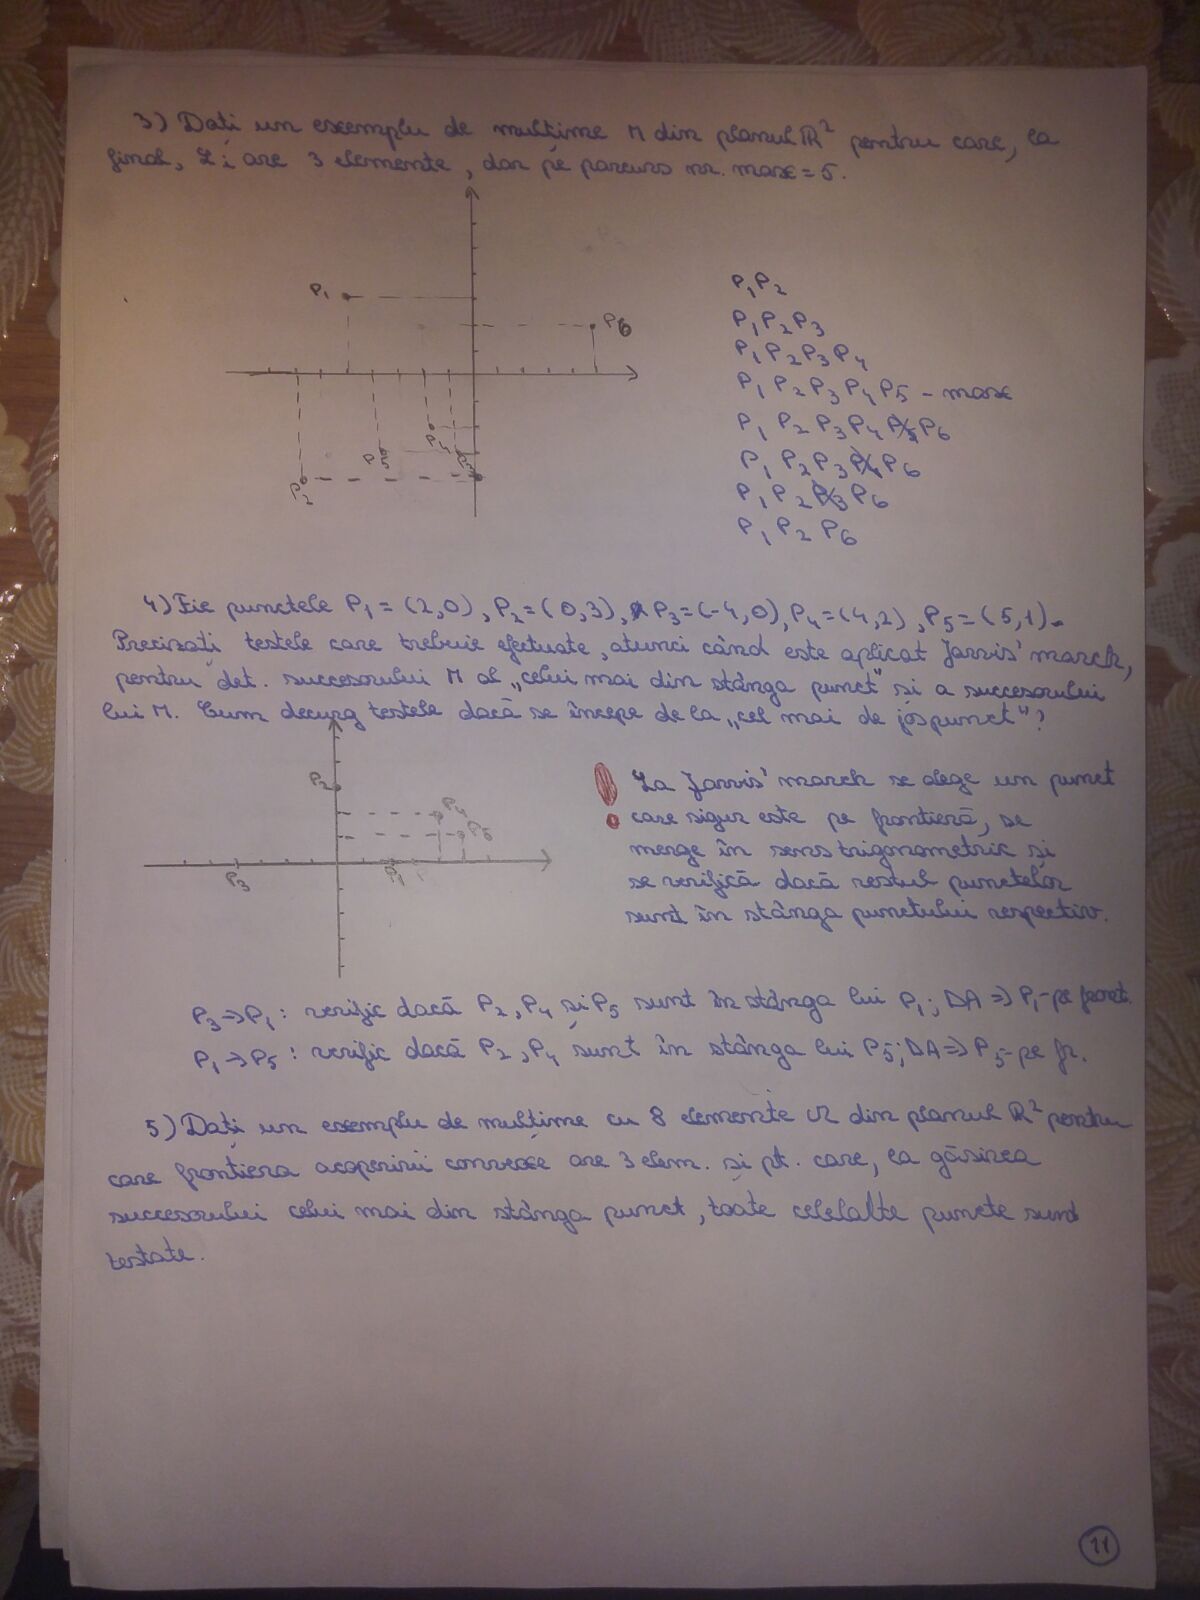 3) Dați un exemplu de mulțime M din planul ℝ² pentru care, la
final, Li are 3 elemente, dar pe parcurs nr. max = 5.
P1
P6
P5
P3
P2
P1P2
P1P2P3
P1P2P3P4
P1P2P3P4P5 - max
P1P2P3P4P5P6
P1P2P3P4P6
P1P2P3P6
P1P2P6
4) Fie punctele P1 = (2,0), P2 = (0,3), P3 = (-4,0), P4 = (4,2), P5 = (5,1).
Precizați testele care trebuie efectuate, atunci când este aplicat Jarvis' march,
pentru det. succesorului M al „celui mai din stânga punct" și a succesorului
lui M. Cum decurg testele dacă se începe de la „cel mai de jos punct"?
P2
P4
P5
P3
P1
! La Jarvis' march se alege un punct
care sigur este pe frontieră, se
merge în sens trigonometric și
se verifică dacă restul punctelor
sunt în stânga punctului respectiv.
P3→P1: verific dacă P2, P4 și P5 sunt în stânga lui P1; DA ⇒ P1-pe front.
P1→P5: verific dacă P2, P4 sunt în stânga lui P5; DA ⇒ P5-pe fr.
5) Dați un exemplu de mulțime cu 8 elemente M din planul ℝ² pentru
care frontiera acoperirii convexe are 3 elem. și pt. care, la găsirea
succesorului celui mai din stânga punct, toate celelalte puncte sunt
testate.
11